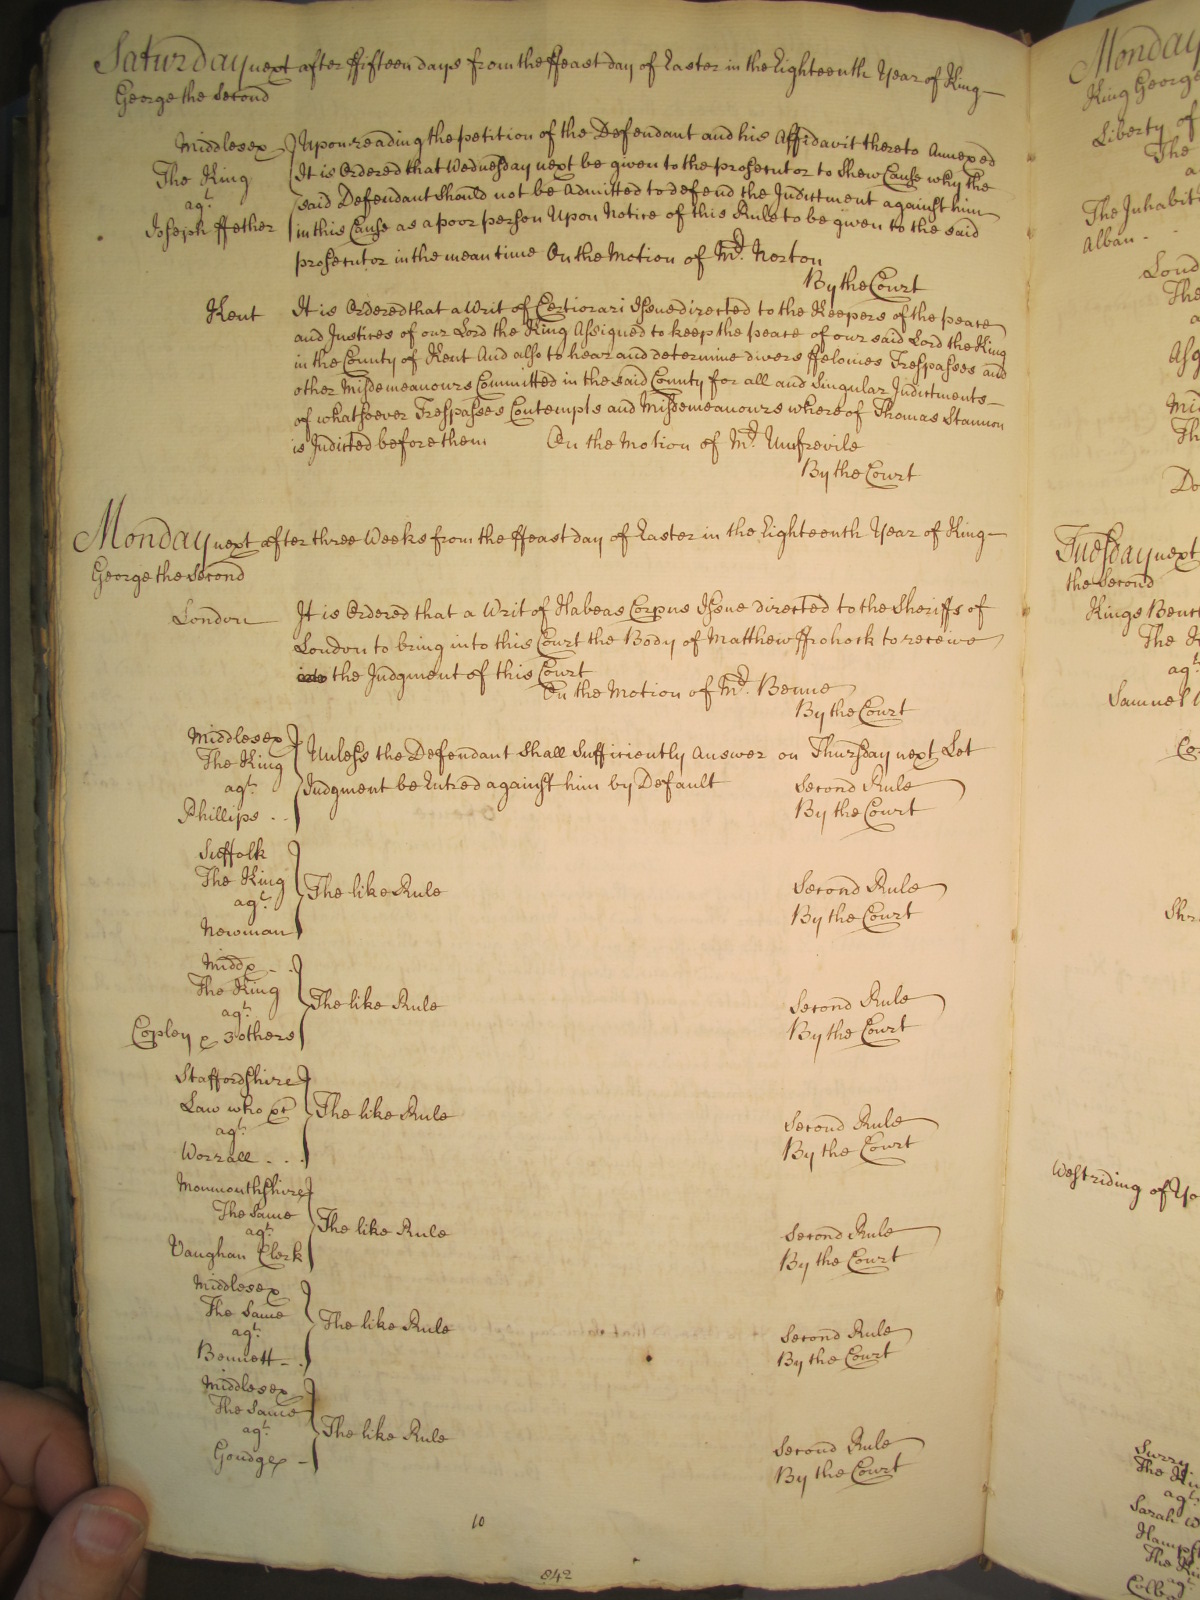 Saturday next after ffifteen days from the ffeast day of Easter in the Eighteenth Year of King
George the Second
Middlesex
The King
agt.
Joseph ffether
Upon reading the petition of the Defendant and his Affidavit thereto Annexed
It is Ordered that Wednesday next be given to the prosecutor to Shew Cause why the
said Defendant Should not be Admitted to defend the Indictment against him
in this Cause as a poor person Upon Notice of this Rule to be given to the said
prosecutor in the mean time On the Motion of Mr. Norton
By the Court
Kent
It is Ordered that a Writ of Certiorari Issue directed to the Keepers of the peace
and Justices of our Lord the King Assigned to keep the peace of our said Lord the King
in the County of Kent And also to hear and determine divers ffelonies Trespasses and
other Misdemeanours Committed in the said County for all and Singular Indictments
of whatsoever Trespasses Contempts and Misdemeanours whereof Thomas Stannon
is Indicted before them On the Motion of Mr. Umfrevile
By the Court
Monday next after three Weeks from the ffeast day of Easter in the Eighteenth Year of King
George the Second
London
It is Ordered that a Writ of Habeas Corpus Issue directed to the Sheriffs of
London to bring into this Court the Body of Matthew ffrohock to receive
the Judgment of this Court
On the Motion of Mr. Benne
By the Court
Middlesex
The King
agt.
Phillips
Unless the Defendant Shall Sufficiently Answer on Thursday next Let
Judgment be Entred against him by Default Second Rule
By the Court
Suffolk
The King
agt.
Newman
The like Rule Second Rule
By the Court
Middx
The King
agt.
Copley & 3 others
The like Rule Second Rule
By the Court
Staffordshire
Law who &c
agt.
Worrall
The like Rule Second Rule
By the Court
Monmouthshire
The Same
agt.
Vaughan Clerk
The like Rule Second Rule
By the Court
Middlesex
The Same
agt.
Bennett
The like Rule Second Rule
By the Court
Middlesex
The Same
agt.
Goudge
The like Rule Second Rule
By the Court
10
842
Monday
King George
Liberty of
The
The Inhabit
Alban
Lond
The
Mi
Th
Do
Tuesday next
the Second
Kings Benc
The K
agt
Samuel
Westriding of Yo
Surry
The Ki
agt
Sarah W
Hampsh
The Ki
agt